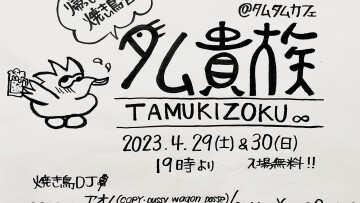 帰ってきた
焼き鳥
@タムタムカフェ
タム貴族
TAMUKIZOKU∞
2023.4.29(土)&30(日)
19時より 入場無料!!
焼き鳥DJ
アオノ(copy・pussy wagon posse)